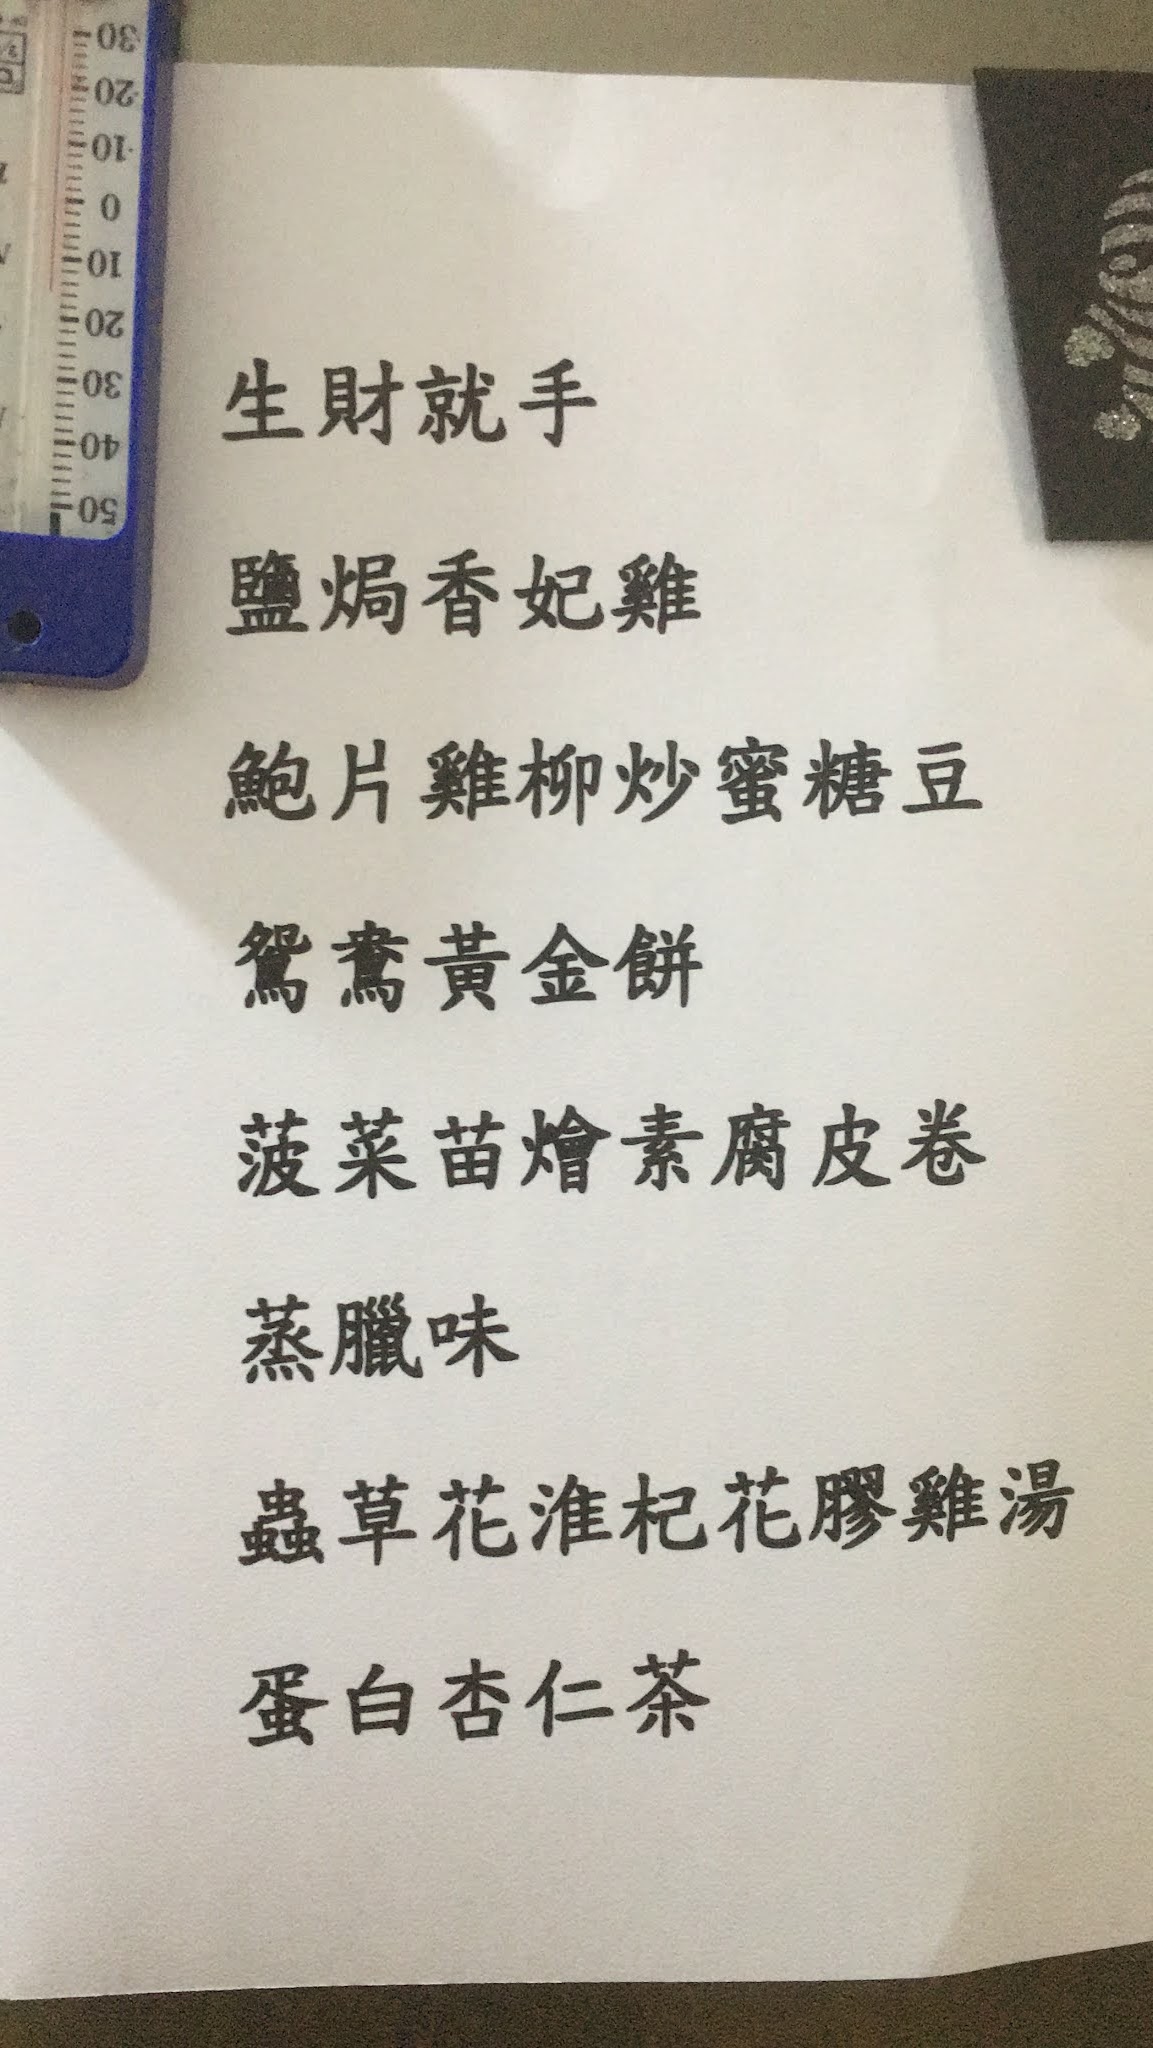 30
20
10
0
10
20
30
40
50
生財就手
鹽焗香妃雞
鮑片雞柳炒蜜糖豆
鴛鴦黃金餅
菠菜苗燴素腐皮卷
蒸臘味
蟲草花淮杞花膠雞湯
蛋白杏仁茶